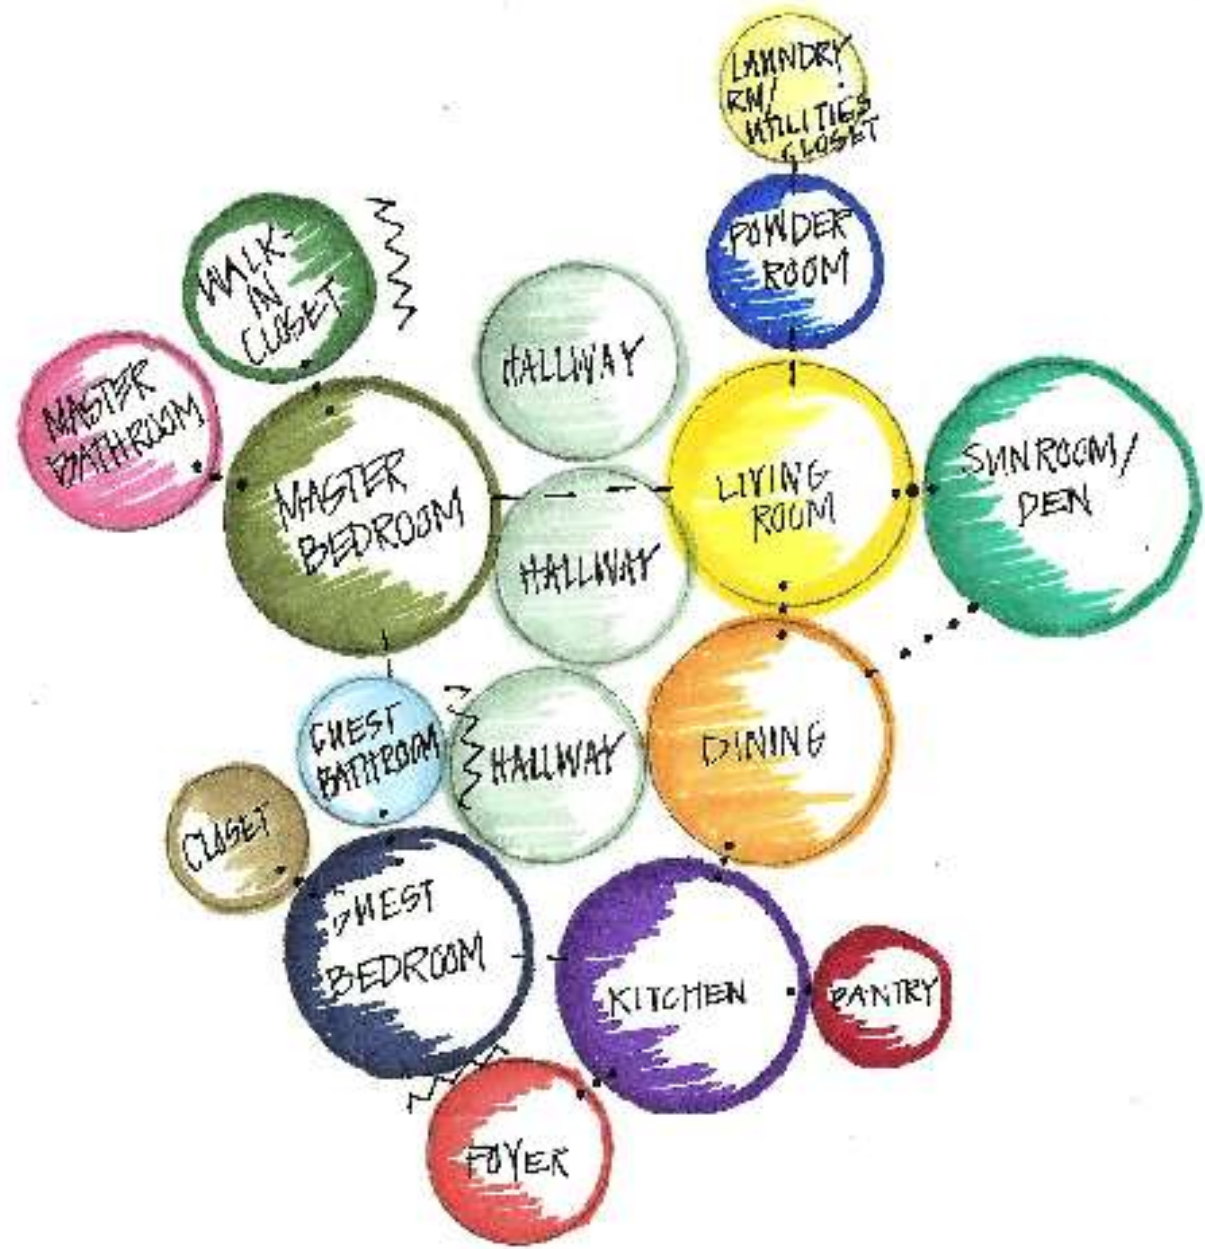 LAUNDRY
RM/
UTILITIES
CLOSET
POWDER
ROOM
WALK-
IN
CLOSET
HALLWAY
MASTER
BATHROOM
MASTER
BEDROOM
LIVING
ROOM
SUNROOM/
DEN
HALLWAY
GUEST
BATHROOM
HALLWAY
DINING
CLOSET
GUEST
BEDROOM
KITCHEN
PANTRY
FOYER